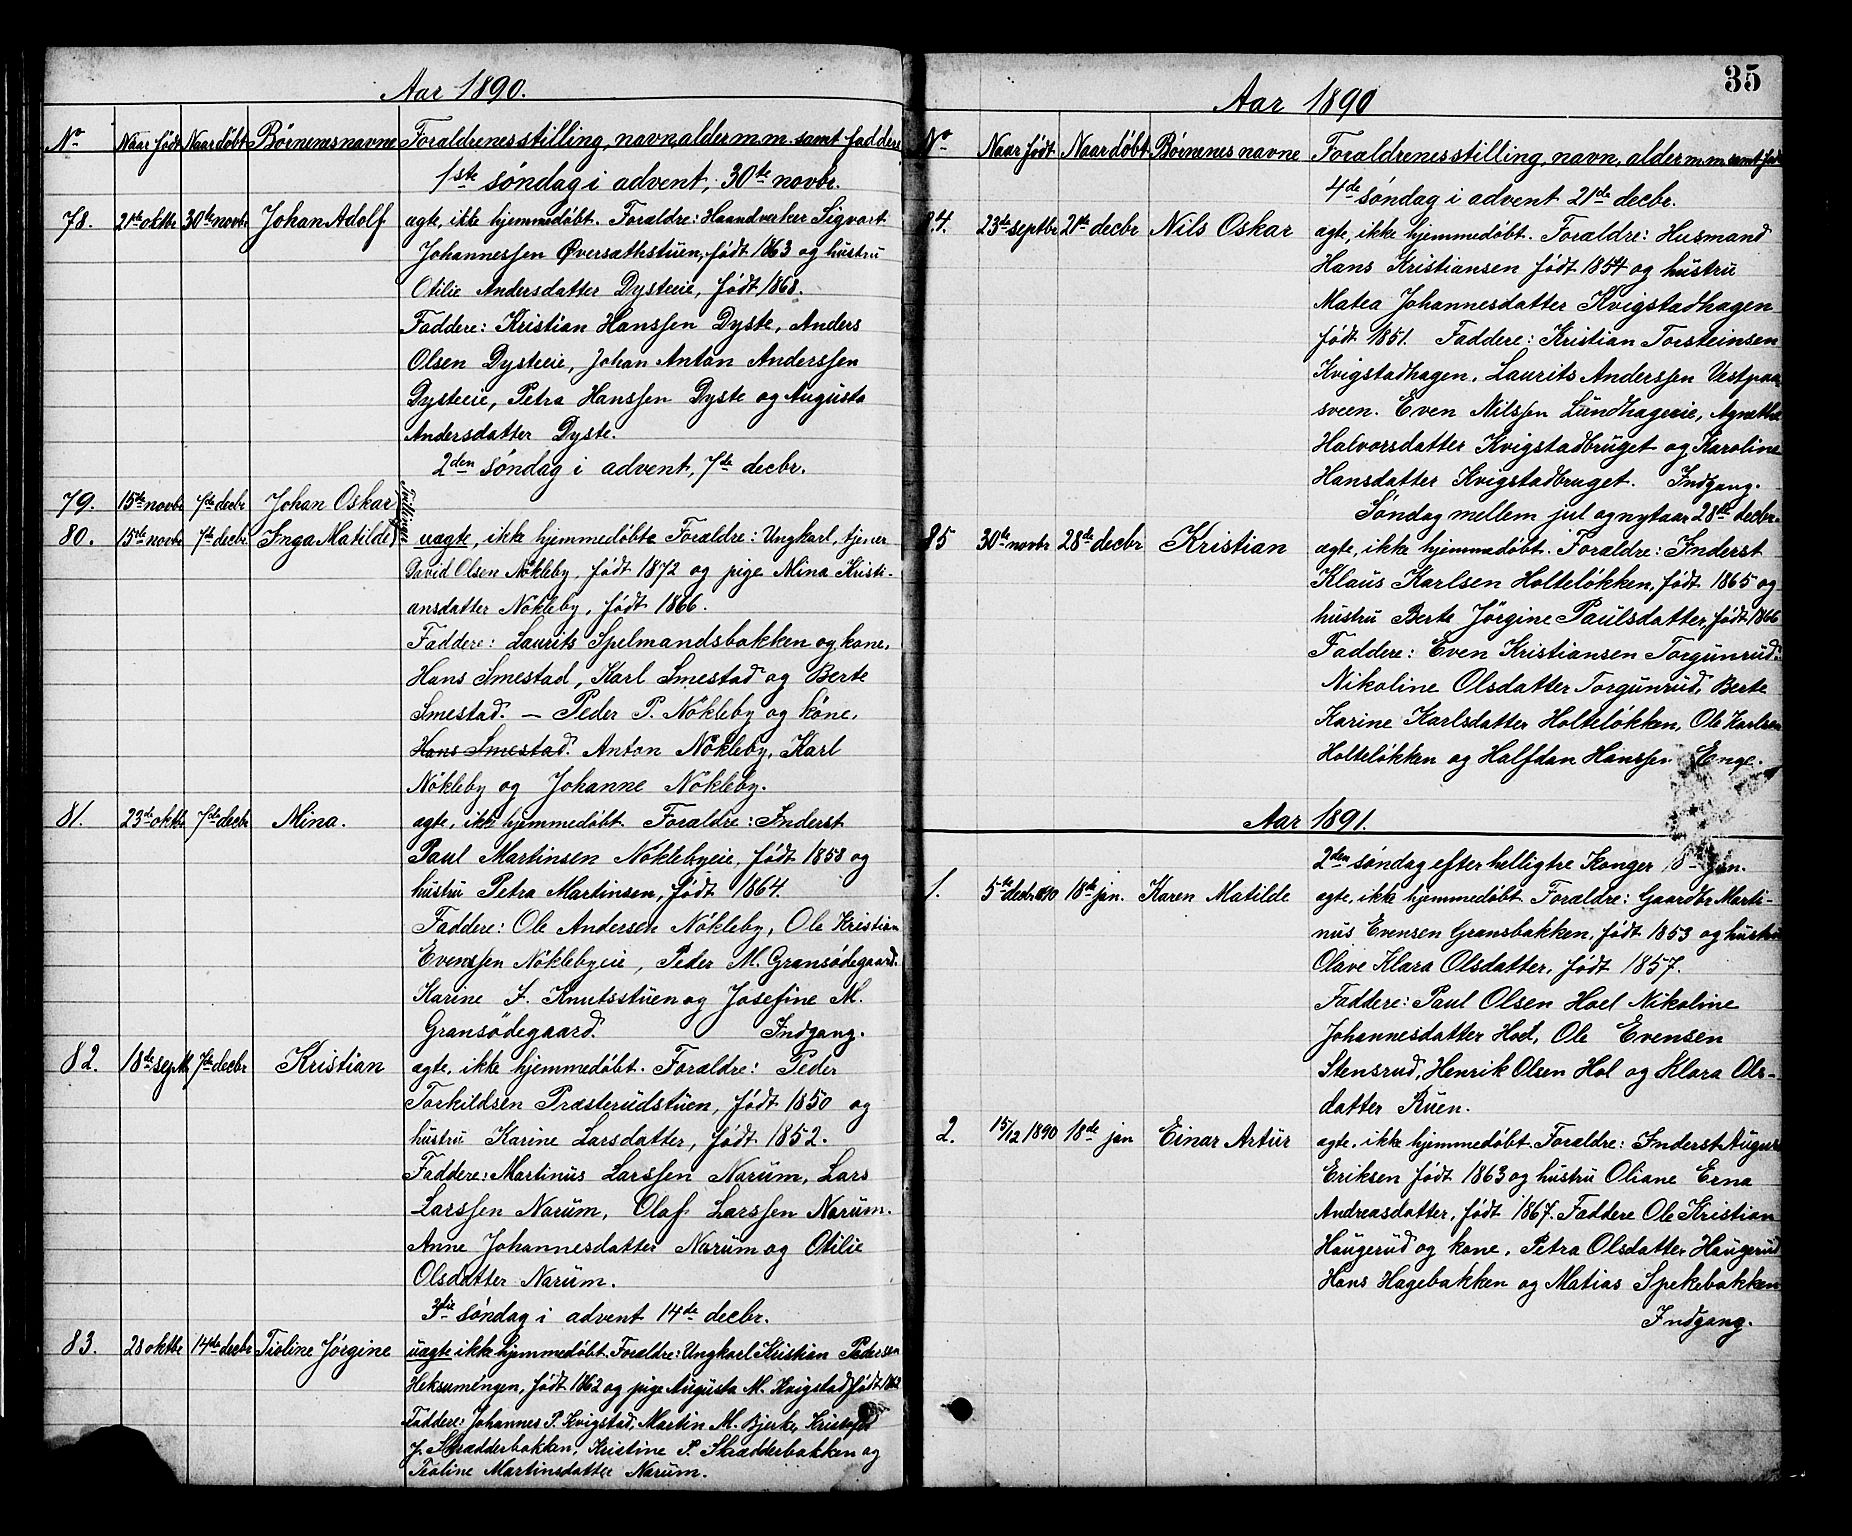 Aar 1890.
No Naar født Naar døbt Børnenes navne Forældrenes stilling, navn, alder m.m. samt faddere
1ste søndag i advent, 30te novbr.
78. 21de oktbr 30te novbr. Johan Adolf ægte, ikke hjemmedøbt. Forældre: Haandverker Sigvart
Johannessen Øversæthstuen, født 1863 og hustru
Otilie Andersdatter Dysteeie, født 1868.
Faddere: Kristian Hanssen Dyste, Anders
Olsen Dysteeie, Johan Anton Anderssen
Dysteeie, Petra Hanssen Dyste og Augusta
Andersdatter Dyste.
2den søndag i advent, 7de decbr.
79. 15de novbr 7de decbr Johan Oskar
Tvillinger
80. 15de novbr 7de decbr Inga Matilde uægte, ikke hjemmedøbte Forældre: Ungkarl, tjener
David Olsen Nøkleby, født 1872 og pige Mina Kristi-
ansdatter Nøkleby, født 1866.
Faddere: Laurits Spelmandsbakken og kone,
Hans Smestad, Karl Smestad og Berte
Smestad. — Peder P. Nøkleby og kone,
Hans Smestad. Anton Nøkleby, Karl
Nøkleby og Johanne Nøkleby.
81. 23de oktbr 7de decbr Mina. ægte, ikke hjemmedøbt. Forældre: Inderst
Paul Martinsen Nøklebyeie, født 1858 og
hustru Petra Martinsen, født 1864.
Faddere: Ole Andersen Nøkleby, Ole Kristian
Evenssen Nøklebyeie, Peder M. Gransødegaard.
Karine F. Knutsstuen og Josefine M.
Gransødegaard. Indgang.
82. 18de septbr 7de decbr Kristian ægte, ikke hjemmedøbt. Forældre: Peder
Torkildsen Præsterudstuen, født 1850 og
hustru Karine Larsdatter, født 1852.
Faddere: Martinus Larssen Narum, Lars
Larssen Narum, Olaf Larssen Narum.
Anne Johannesdatter Narum og Otilie
Olsdatter Narum.
3die søndag i advent 14de decbr.
83. 28 oktbr 14de decbr Tioline Jørgine uægte ikke hjemmedøbt. Forældre: Ungkarl Kristian Pedersen
Heksumengen, født 1862 og pige Augusta M. Kvigstad født 1862
Faddere: Johannes P. Kvigstad, Martin M. Bjerke, Kristofer
J. Skrædderbakken, Kristine P. Skrædderbakken og
Tioline Martinsdatter Narum.
35
Aar 1890
No Naar født Naar døbt Børnenes navne Forældrenes stilling, navn, alder m.m. samt fad
4de søndag i advent 21de decbr.
84. 23de septbr 21de decbr Nils Oskar ægte, ikke hjemmedøbt. Forældre: Husmand
Hans Kristiansen født 1854 og hustru
Matea Johannesdatter Kvigstadhagen
født 1851. Faddere: Kristian Torsteinsen
Kvigstadhagen, Laurits Anderssen Vestpaa
sveen. Even Nilssen Lundhageeie, Agnethe
Halvorsdatter Kvigstadbruget og Karoline
Hansdatter Kvigstadbruget. Indgang.
Søndag mellem jul og nytaar 28de decbr.
85 30te novbr 28de decbr Kristian ægte, ikke hjemmedøbt. Forældre: Inderst
Klaus Karlsen Holteløkken, født 1865 og
hustru Berte Jørgine Paulsdatter, født 1866
Faddere: Even Kristiansen Torgunrud,
Nikoline Olsdatter Torgunrud, Berte
Karine Karlsdatter Holteløkken, Ole Karlsen
Holteløkken og Halfdan Hanssen Enge.
Aar 1891.
2den søndag efter helligtre Konger, 18de jan.
1. 5te decbr 1890 18de jan. Karen Matilde ægte, ikke hjemmedøbt. Forældre: Gaardbr Marti-
nus Evensen Gransbakken, født 1853 og hustru
Olave Klara Olsdatter, født 1857.
Faddere: Paul Olsen Hoel Nikoline
Johannesdatter Hoel, Ole Evensen
Stensrud, Henrik Olsen Hol og Klara Ols-
datter Ruen.
2. 15/12 1890 18de jan Einar Artur ægte, ikke hjemmedøbt. Forældre: Inderst August
Eriksen født 1863 og hustru Oliane Erna
Andreasdatter, født 1867. Faddere Ole Kristian
Haugerud og kone, Petra Olsdatter Haugerud
Hans Hagebakken og Matias Spekebakken
Indgang.